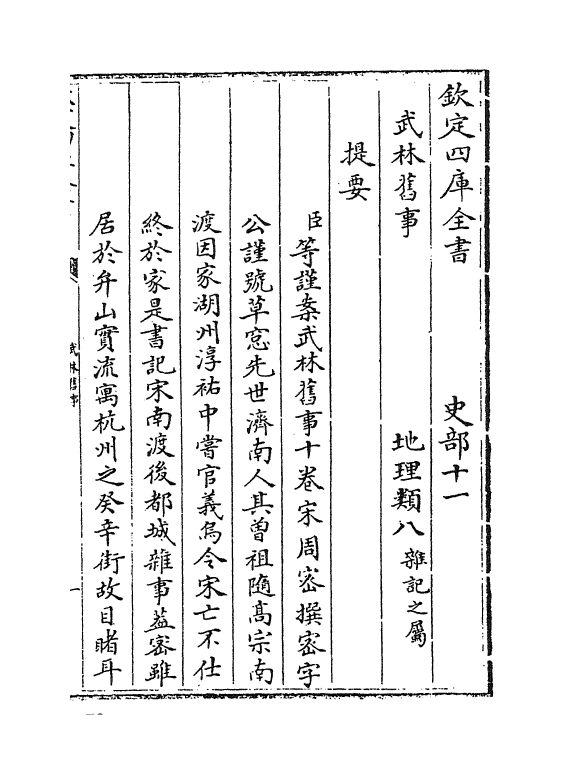 欽定四庫全書 史部十一
武林舊事 地理類八 雜記之屬
提要
臣等謹案武林舊事十卷宋周密撰密字
公謹號草窓先世濟南人其曾祖隨髙宗南
渡因家湖州淳祐中嘗官義烏令宋亡不仕
終於家是書記宋南渡後都城雜事葢密雖
居於弁山實流寓杭州之癸辛街故目睹耳
武林舊事
一